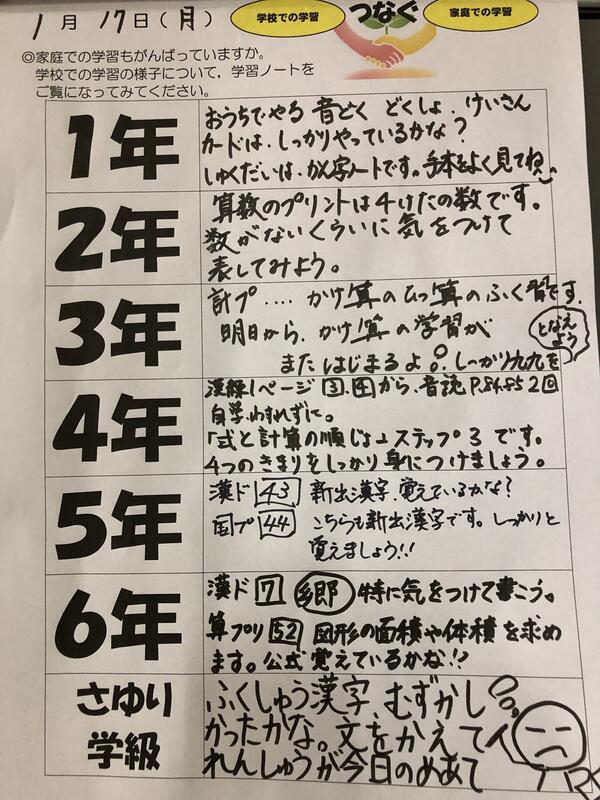 1月17日(月)
学校での学習
つなぐ
家庭での学習
◎家庭での学習もがんばっていますか。
学校での学習の様子について,学習ノートを
ご覧になってみてください。
1年
おうちでやる 音どく どくしょ.けいさん
カードは、しっかりやっているかな?
しゅくだいは、かん字ノートです。手本をよく見てね
2年
算数のプリントは4けたの数です。
数がないくらいに気をつけて
表してみよう。
3年
計プ‥‥ かけ算のひっ算のふく習です.
明日から、かけ算の学習が
またはじまるよ!しっかり九九を
となえよう
4年
漢練1ページ ③.④から、音読P.84.85 2回
自学.わすれずに。
「式と計算の順じょ」ステップ3です。
4つのきまりをしっかり身につけましょう。
5年
漢ド 43 新出漢字、覚えているかな?
国プ 44 こちらも新出漢字です。しっかりと
覚えましょう!!
6年
漢ド 7 郷 特に気をつけて書こう。
算プリ 52 図形の面積や体積を求め
ます。公式覚えているかな!!
さゆり
学級
ふくしゅう漢字、むずかし
かったかな。文をかえて
れんしゅうが今日のめあて